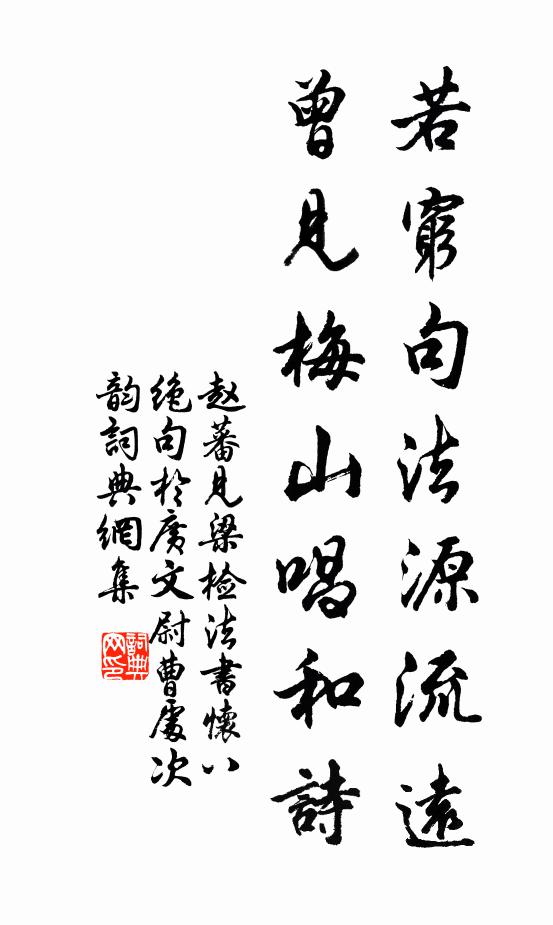 若窮句法源流遠
曾見梅山唱和詩
赵蕃見梁检法書懷八
绝句於廣文尉曹處次
韵詞典網集
詞典网印